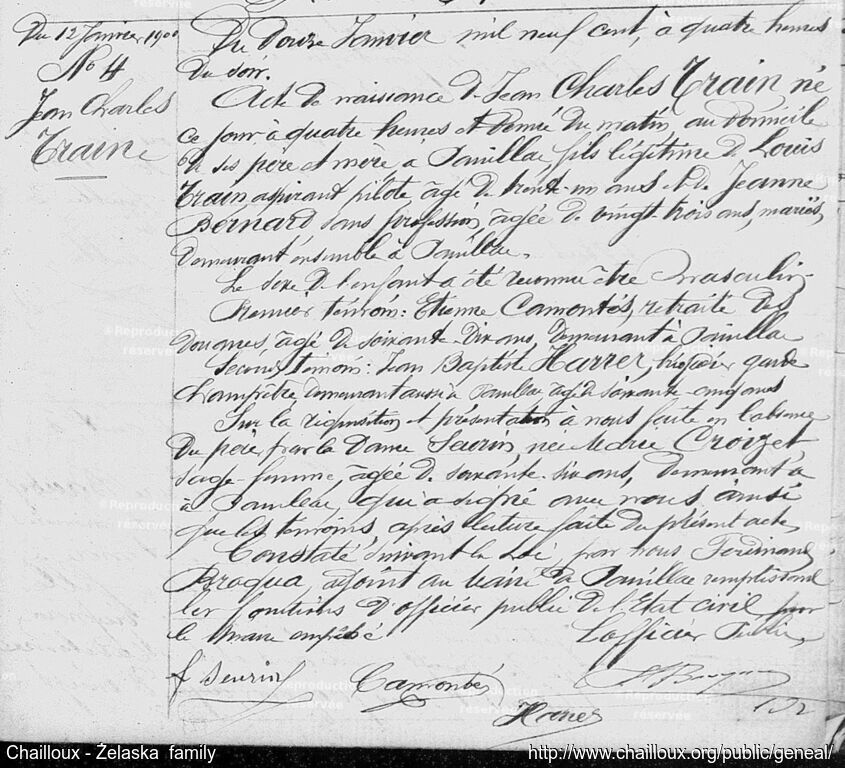 Du 12 Janvier 1900
No 4
Jean Charles
Train
Du douze Janvier mil neuf cent, à quatre heures
du soir.
Acte de naissance de Jean Charles Train né
ce jour à quatre heures et demie du matin au domicile
de ses père et mère à Pauillac fils légitime de Louis
Train aspirant pilote, agé de trente-un ans et de Jeanne
Bernard sans profession, agée de vingt trois ans, mariés,
demeurant ensemble à Pauillac.
Le sexe de l'enfant a été reconnu être masculin
Premier témoin: Etienne Camontés, retraité des
douanes, agé de soixante-dix ans, demeurant à Pauillac
Second témoin: Jean Baptiste Harrer, garde
champêtre, demeurant aussi à Pauillac agé de soixante-cinq ans
Sur la réquisition et présentation à nous faite en l'absence
du père par la Dame née Marie Croizet
sage-femme, agée de soixante-six ans, demeurant
à Pauillac, qui a signé avec nous ainsi
que les témoins, après lecture faite du présent acte,
Constaté, suivant la Loi, par nous Ferdinand
Braqua, adjoint au Maire de Pauillac remplissant
les fonctions d'officier public de l'Etat civil, pour
le maire empêché L'officier Public,
Camontés
Harrer
©Reproduction réservée
Chailloux - Želaska family
http://www.chailloux.org/public/geneal/